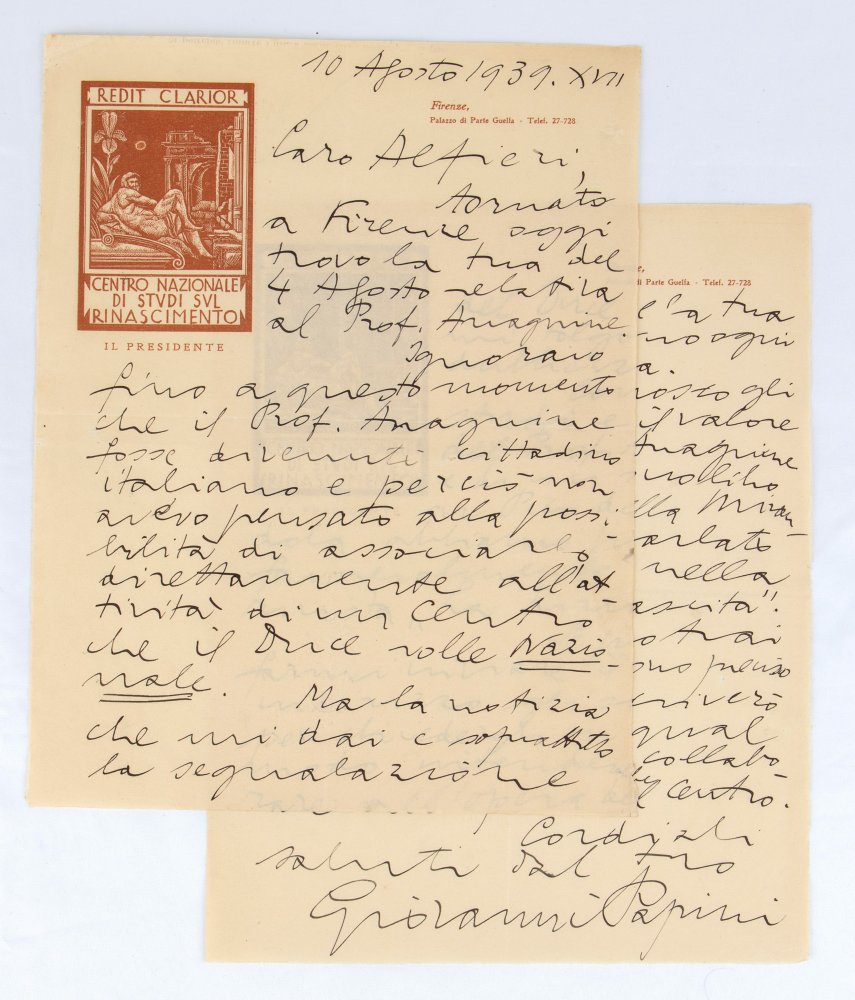 10 Agosto 1939. XVII
REDIT CLARIOR
CENTRO NAZIONALE
DI STVDI SVL
RINASCIMENTO
IL PRESIDENTE
Firenze,
Palazzo di Parte Guelfa - Telef. 27-728
Caro Alfieri,
tornato
a Firenze oggi
trovo la tua del
4 Agosto relativa
al Prof. Anagnine.
Ignoravo
fino a questo momento
che il Prof. Anagnine
fosse divenuto cittadino
italiano e perciò non
avevo pensato alla possi-
bilità di associarlo
direttamente all'at
tività di un Centro
che il Duce volle Nazio-
nale.
Ma la notizia
che mi dai e soprattutto
la segnalazione
i Parte Guelfa - Telef. 27-728
a tua
ogni
a.
nosco gli
il valore
Anagnine
suo libro
lla Miran-
arlato
nella
ascita".
otrai
preciso
criverò
qual
collabo
el Centro.
Cordiali
saluti dal tuo
Giovanni Papini